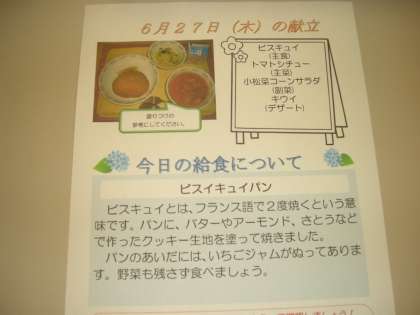 6月27日（木）の献立
ビスキュイ
(主食)
トマトシチュー
(主菜)
小松菜コーンサラダ
(副菜)
キウイ
(デザート)
盛りつけの
参考にしてください。
今日の給食について
ビスイキュイパン
ビスキュイとは、フランス語で２度焼くという意
味です。パンに、バターやアーモンド、さとうなど
で作ったクッキー生地を塗って焼きました。
パンのあいだには、いちごジャムがぬってありま
す。野菜も残さず食べましょう。